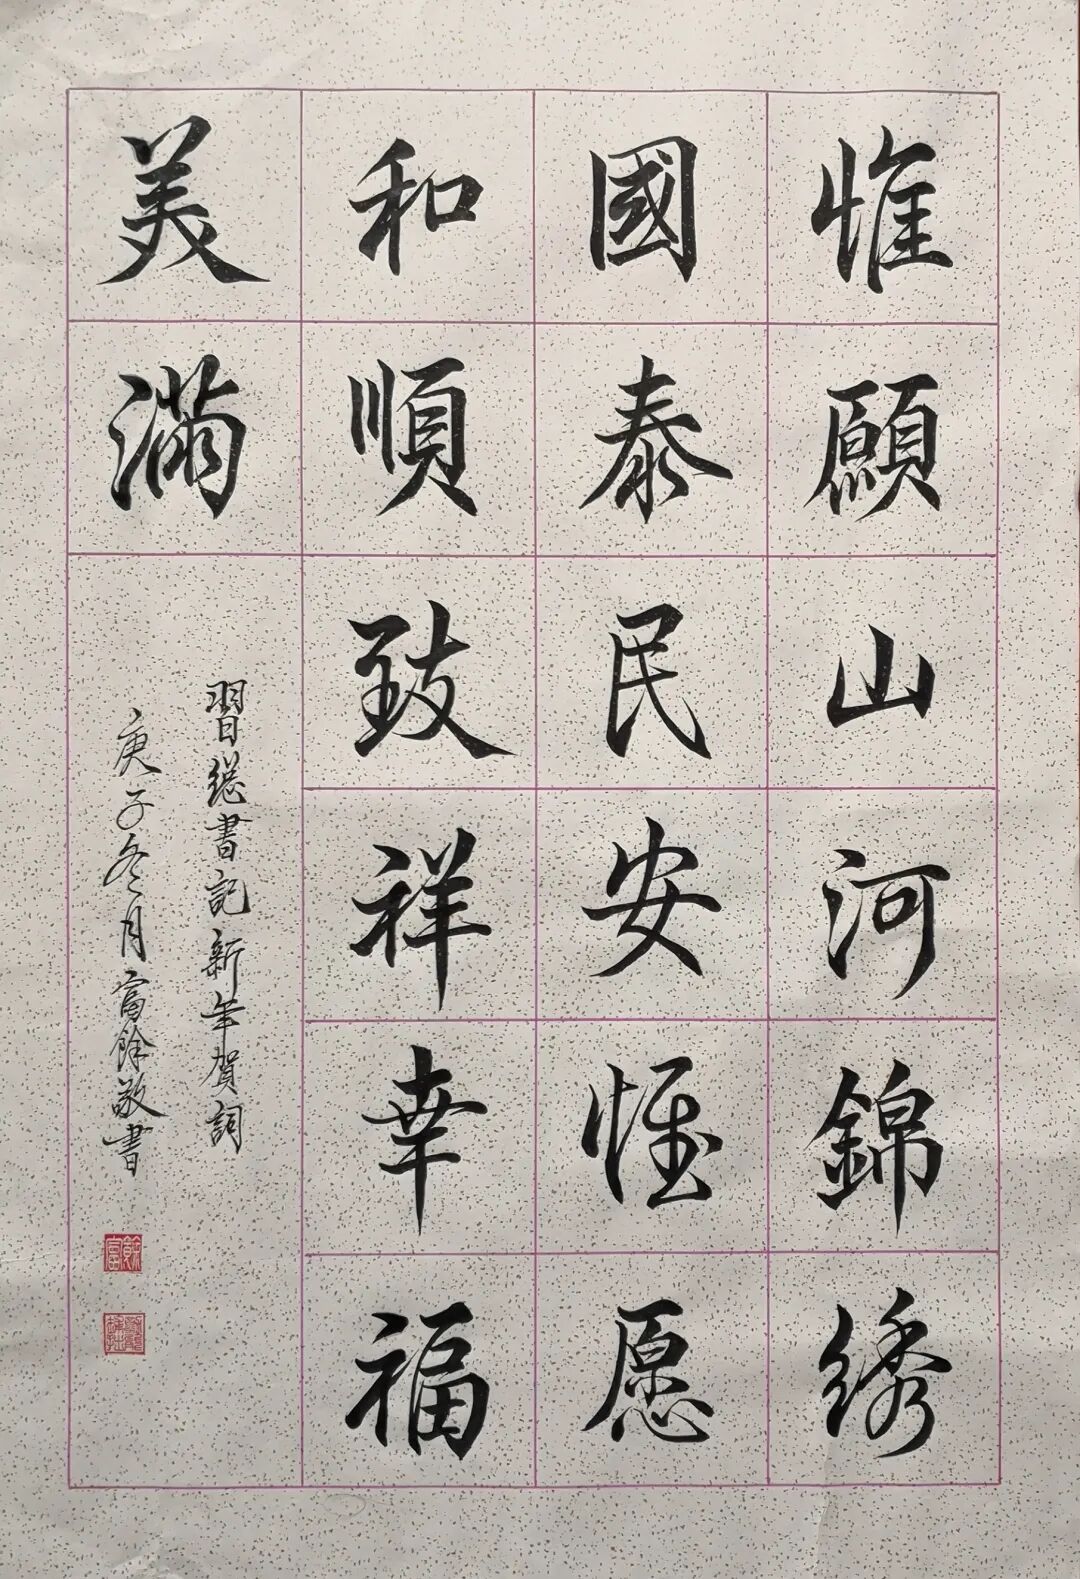 惟願山河錦绣
國泰民安惟愿
和順致祥幸福
美滿
習總書記新年賀詞
庚子冬月富餘敬書